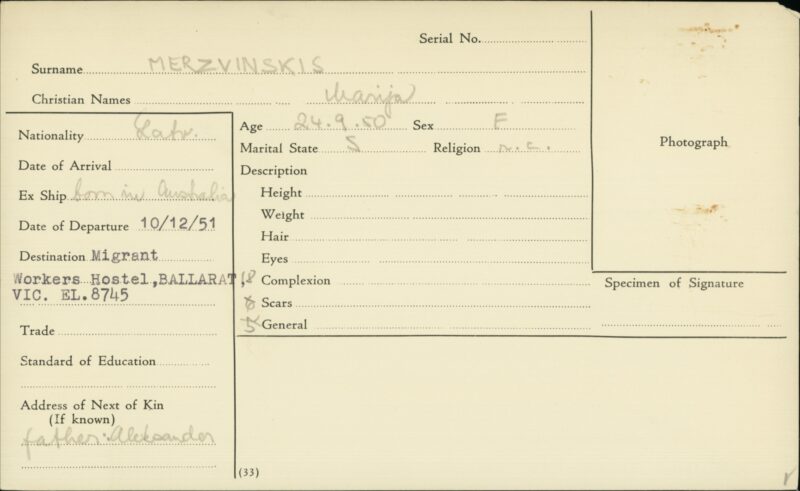 Serial No.
Surname MERZVINSKIS
Christian Names Marija
Nationality Latv.
Date of Arrival
Ex Ship born in Australia
Date of Departure 10/12/51
Destination Migrant
Workers Hostel,BALLARAT,
VIC. EL.8745
Trade
Standard of Education
Address of Next of Kin
(If known)
father: Aleksander
Age 24.9.50 Sex F
Marital State S Religion r.c.
Description
Height
Weight
Hair
Eyes
Complexion
Scars
General
(33)
Photograph
Specimen of Signature